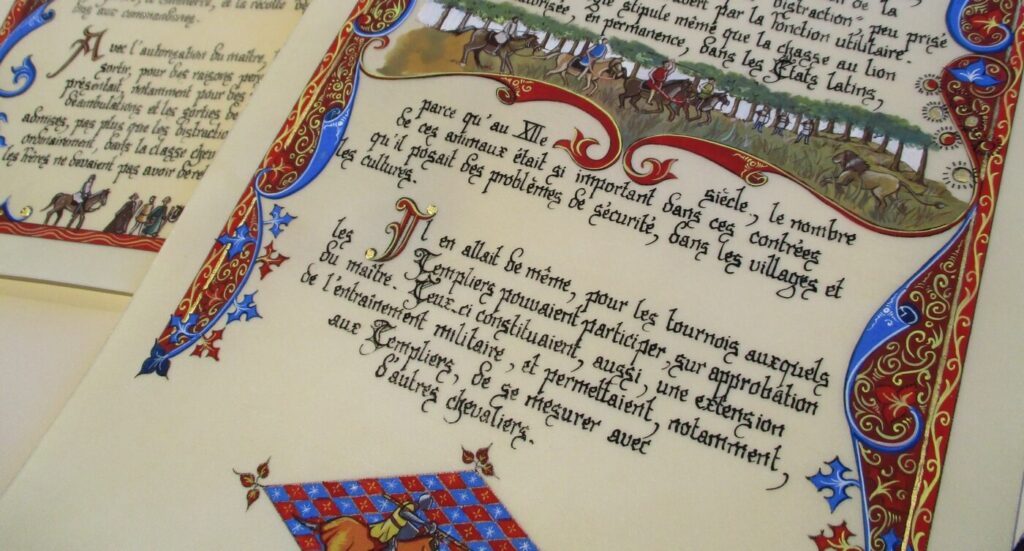 commerce, et la récolte de
aux commanderies.
Avec l'autorisation du maître,
sortir, pour des raisons
présentait, notamment pour
déambulations et les sorties de
admises, pas plus que les
ordinairement, dans la classe
les frères ne devaient pas avoir de
de la
distraction", peu prisé
par la fonction utilitaire.
stipule même que la chasse au lion
en permanence, dans les États latins,
parce qu'au XIIe siècle, le nombre
de ces animaux était si important dans ces contrées
qu'il posait des problèmes de sécurité, dans les villages et
les cultures.
Il en allait de même, pour les tournois auxquels
les Templiers pouvaient participer, sur approbation
du maître. Ceux-ci constituaient, aussi, une extension
de l'entraînement militaire, et permettaient, notamment,
aux Templiers, de se mesurer avec
d'autres chevaliers.